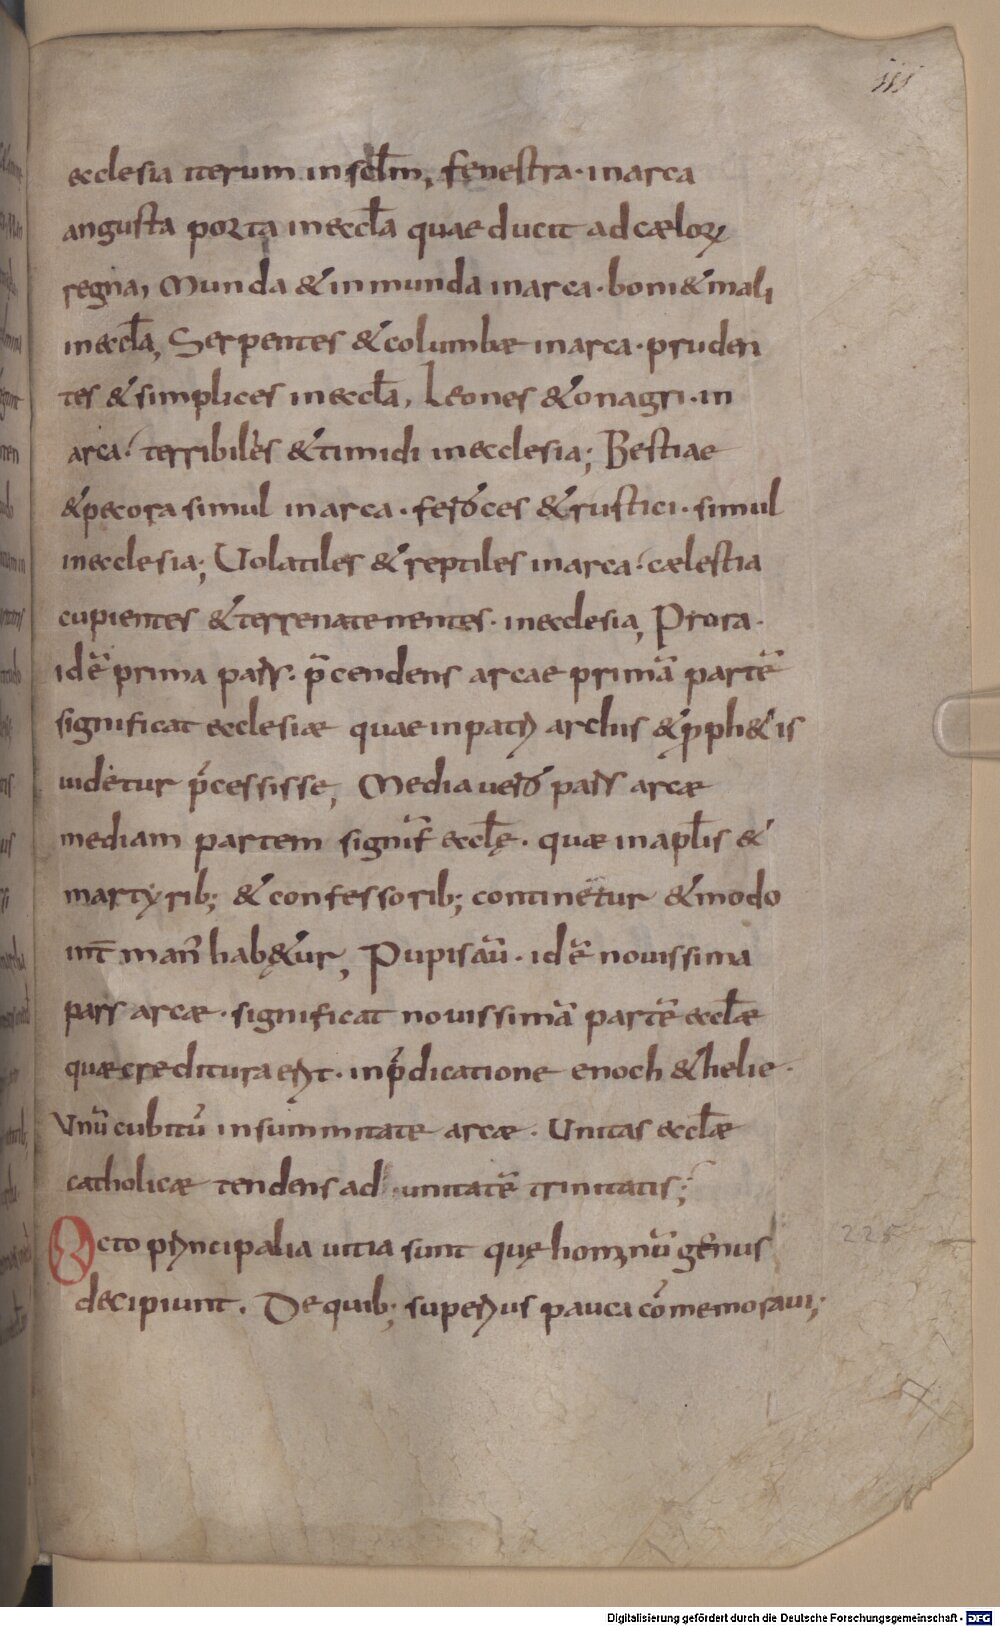 111
ecclesia iterum in sclm, fenestra · in arca
angusta porta in eccla quae ducit ad cælorꝝ
regna, Munda & inmunda in arca · boni & mali
in eccla, Serpentes & columbæ in arca · pruden
tes & simplices in eccla, Leones & onagri · in
arca · terribiles & timidi in ecclesia; Bestiae
& pecora simul in arca · feroces & rustici · simul
in ecclesia; Uolatiles & reptiles in arca · cælestia
cupientes & terrena tenentes · in ecclesia, Prora ·
id ē prima pars · p̄cendens arcae primā partē
significat ecclesiæ quae in patriarchis & p̄ph&is
uidetur p̄cessisse, Media uero pars arcæ
mediam partem signif̄ ecclę · quæ in aplis &
martyrib; & confessorib; continetur & modo
int̄ man̄ hab&ur, Pupis aū · id ē nouissima
pars arcæ · significat nouissimā partē ecclæ
quæ creditura erit · in p̄dicatione enoch & helie ·
Vnū cubitū in summitate arcæ · Unitas ecclæ
catholicæ tendens ad unitatē trinitatis;
Octo principalia uitia sunt quę hominū genus
decipiunt. De quib; superius pauca cōmemoraui;
225
Digitalisierung gefördert durch die Deutsche Forschungsgemeinschaft - DFG